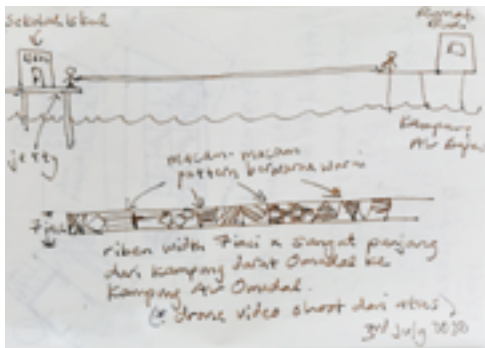 Sekolah Iskul
Rumah
jetty
Kampung
Air
macam-macam
pattern berwarna warni
7 inci
riben width 7 inci x sangat panjang
dari kampung darat Omadal ke
Kampung Air Omadal.
(drone video shoot dari atas)
3rd July 2020